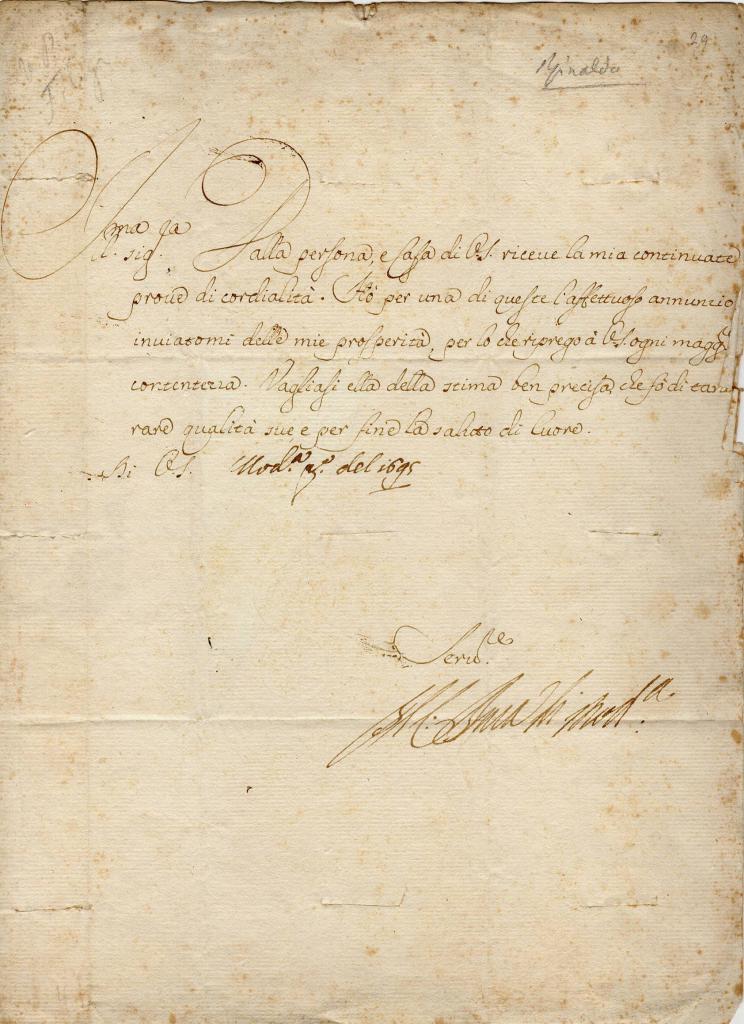 29
Rinaldo
Ill.ma Sig.ra Dalla persona, e Casa di V.S. riceve la mia continuate
prove di cordialità. Hò per una di queste l'affettuoso annuncio
inviatomi delle mie prosperità, per lo che riprego à V.S. ogni magg.r
contentezza. Vagliasi ella della stima ben precisa, che fò di
rare qualità sue e per fine la saluto di Cuore.
Di V.S. Mod.a del 1695
Il Duca di Mod.a